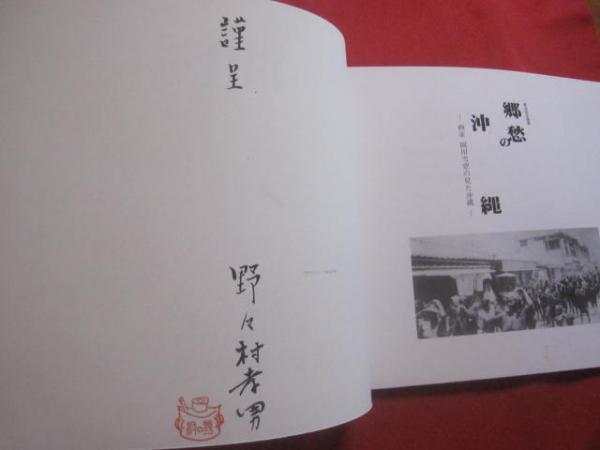 謹呈
野々村孝男
郷愁の
沖縄
―画家 岡田雪窓の見た沖縄―